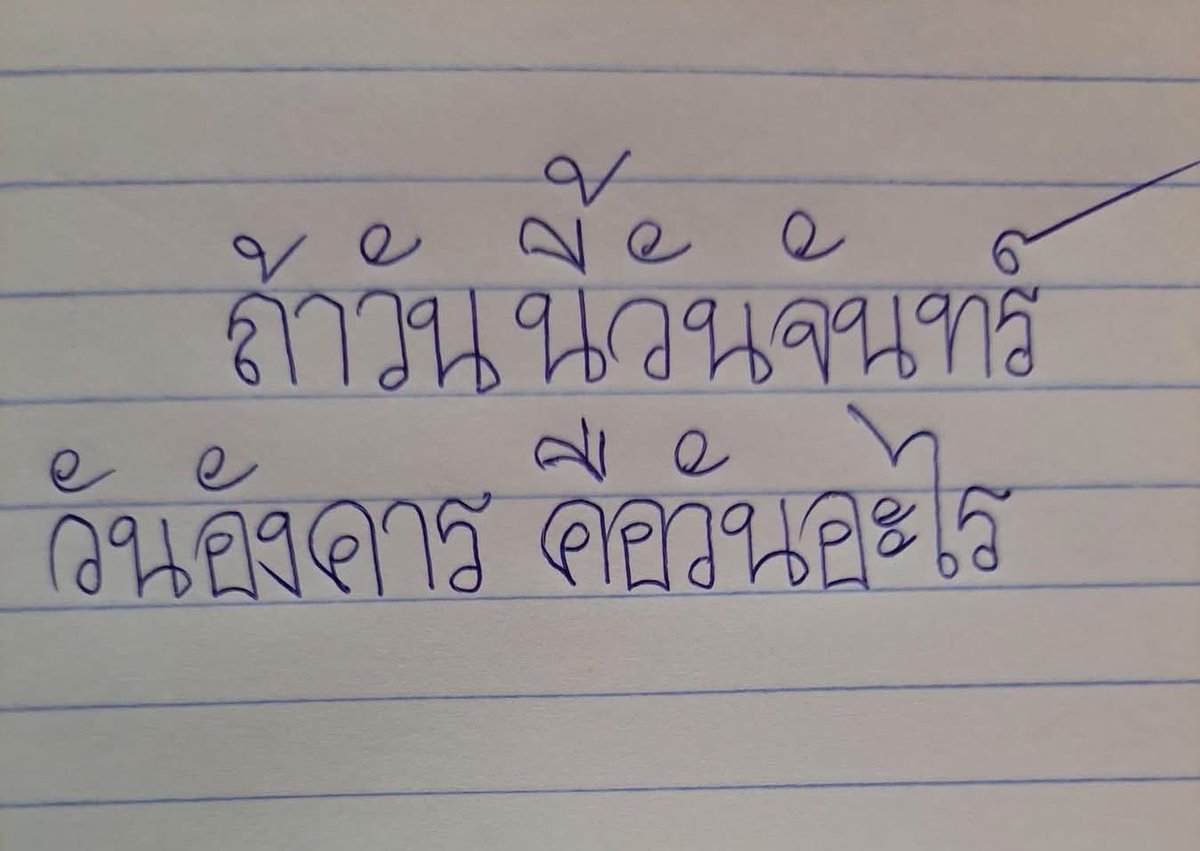 ถ้าวันนี้วันจันทร์
วันอังคาร คือวันอะไร